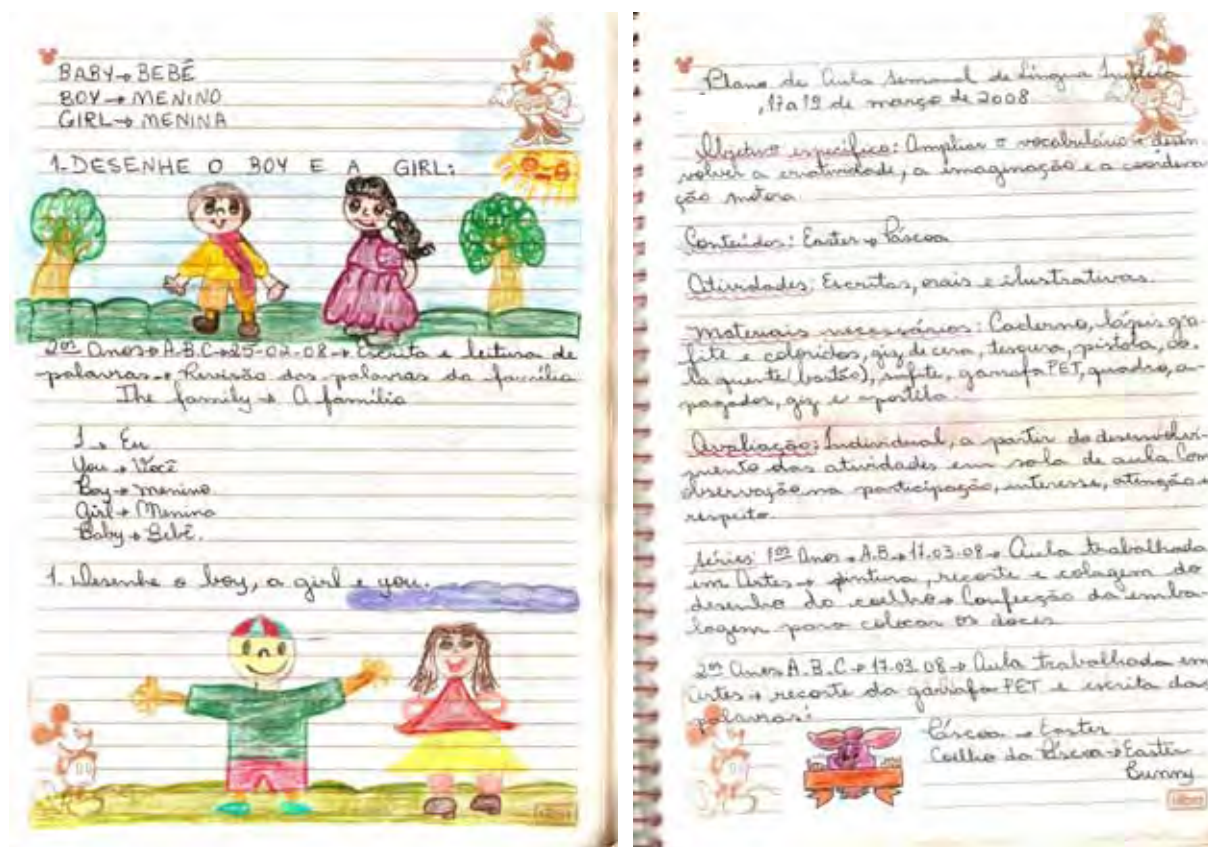 BABY → BEBÊ
BOY → MENINO
GIRL → MENINA
1-DESENHE O BOY E A GIRL:
2os Anos → A.B.C → 25-02-08 → Escrita e leitura de
palavras → Revisão das palavras da família
The family → A família
I → Eu
You → Você
Boy → menino
Girl → Menina
Baby → Bebê.
1. Desenhe o boy, a girl e you.
tilibra
Plano de Aula Semanal de Língua Inglesa
, 17 a 19 de março de 2008
Objetivo específico: Ampliar o vocabulário e desen-
volver a criatividade, a imaginação e a coordena-
ção motora.
Conteúdos: Easter → Páscoa
Atividades: Escritas, orais e ilustrativas.
Materiais necessários: Caderno, lápis gra-
fite e coloridos, giz de cera, tesoura, pistola, co-
la quente (bastão), sulfite, garrafa PET, quadro, a-
pagador, giz e apostila.
Avaliação: Individual, a partir do desenvolvi-
mento das atividades em sala de aula com
observação na participação, interesse, atenção e
respeito.
Séries: 1os Anos → A.B → 17.03.08 → Aula trabalhada
em Artes → pintura, recorte e colagem do
desenho do coelho → Confecção da emba-
lagem para colocar os doces
2os Anos A.B.C → 17.03.08 → Aula trabalhada em
Artes → recorte da garrafa PET e escrita das
palavras:
Páscoa → Easter
Coelho da Páscoa → Easter
Bunny
tilibra